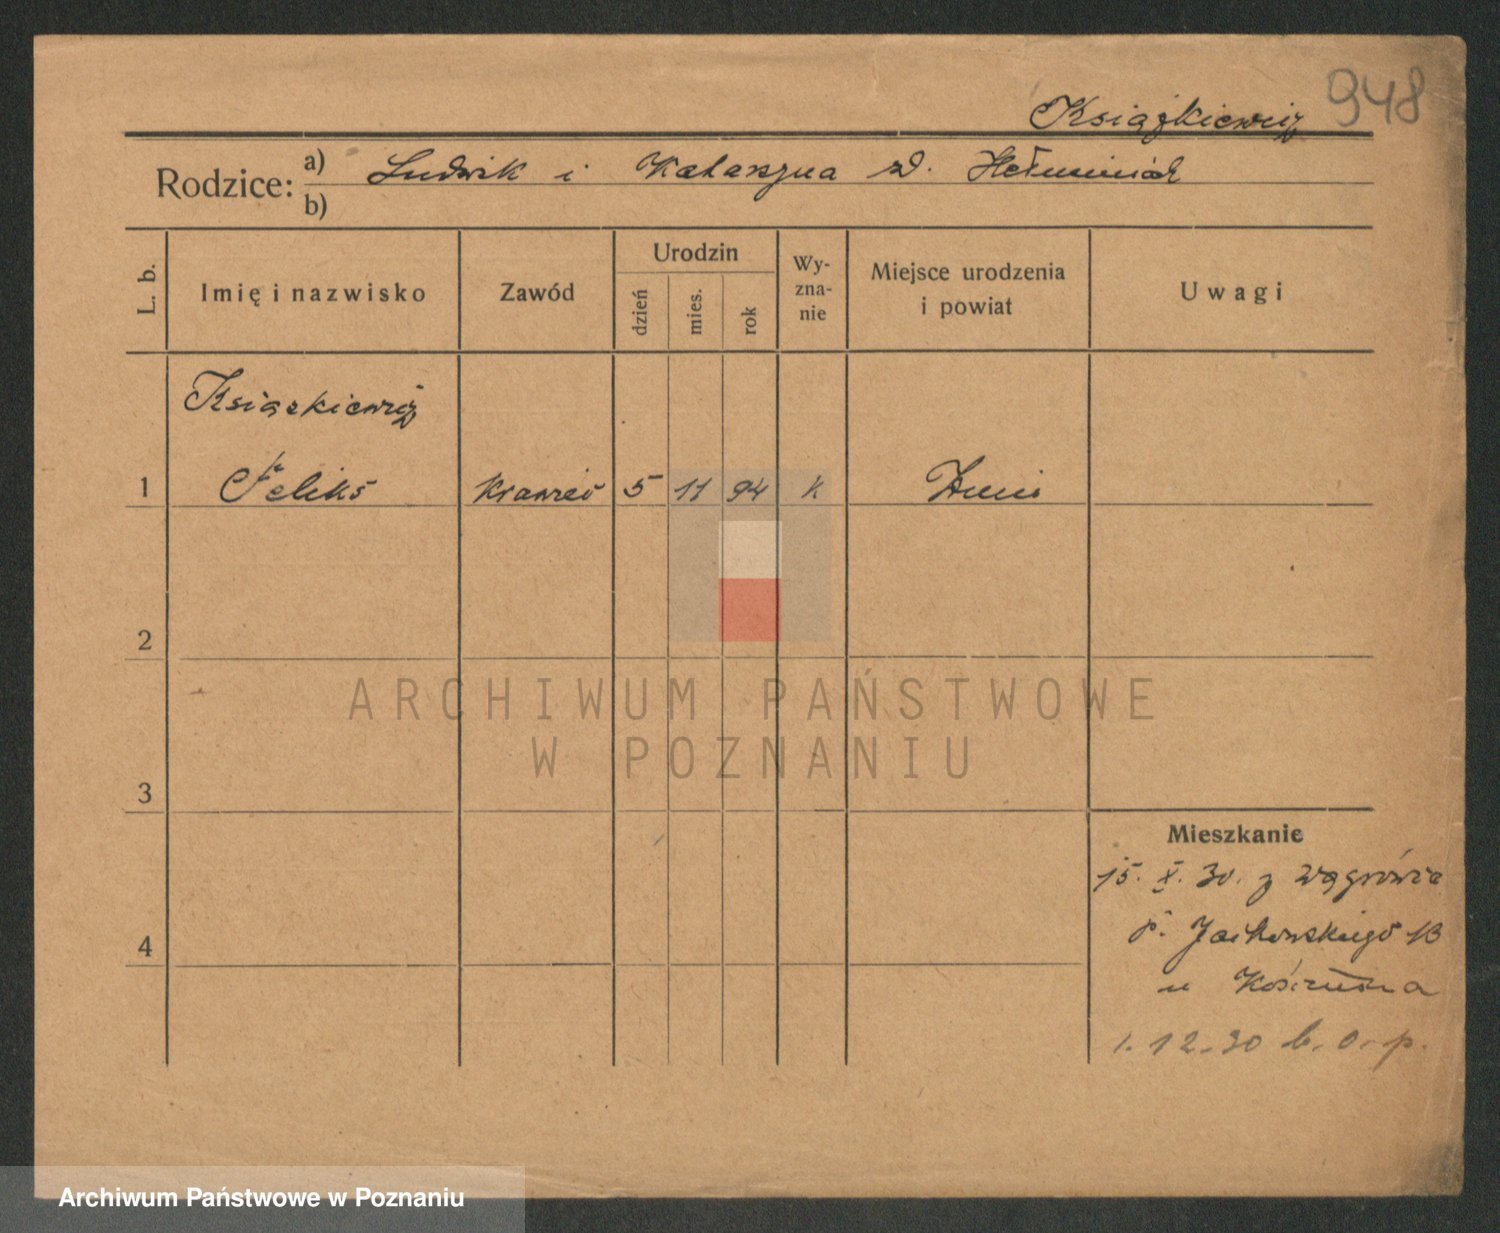 948
Książkiewicz
Rodzice: a) Ludwik i Katarzyna d.
b)
L. b. Imię i nazwisko Zawód Urodzin dzień mies. rok Wy-zna-nie Miejsce urodzenia i powiat Uwagi
Książkiewicz
1 Feliks krawiec 5 11 94 k Żnin
2
ARCHIWUM PAŃSTWOWE
W POZNANIU
3
Mieszkanie
15. X. 30. z Wągrówca
p. Jackowskiego 13
4
u
1. 12. 30 b. o. p.
Archiwum Państwowe w Poznaniu